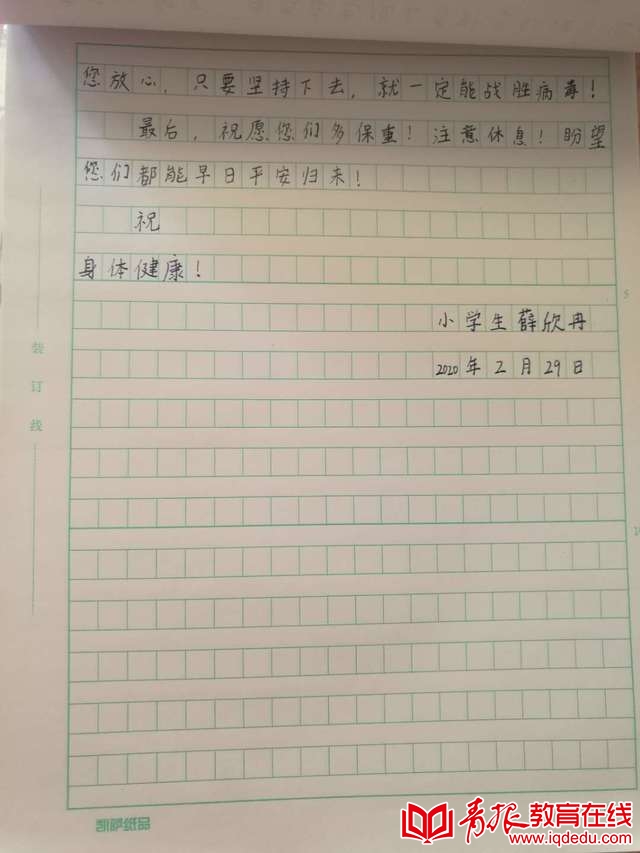 您放心，只要坚持下去，就一定能战胜病毒！
最后，祝愿您们多保重！注意休息！盼望
您们都能早日平安归来！
祝
身体健康！
小学生薛欣冉
2020年2月29日
5
装订线
凯萨纸品
青报教育在线
www.iqdedu.com